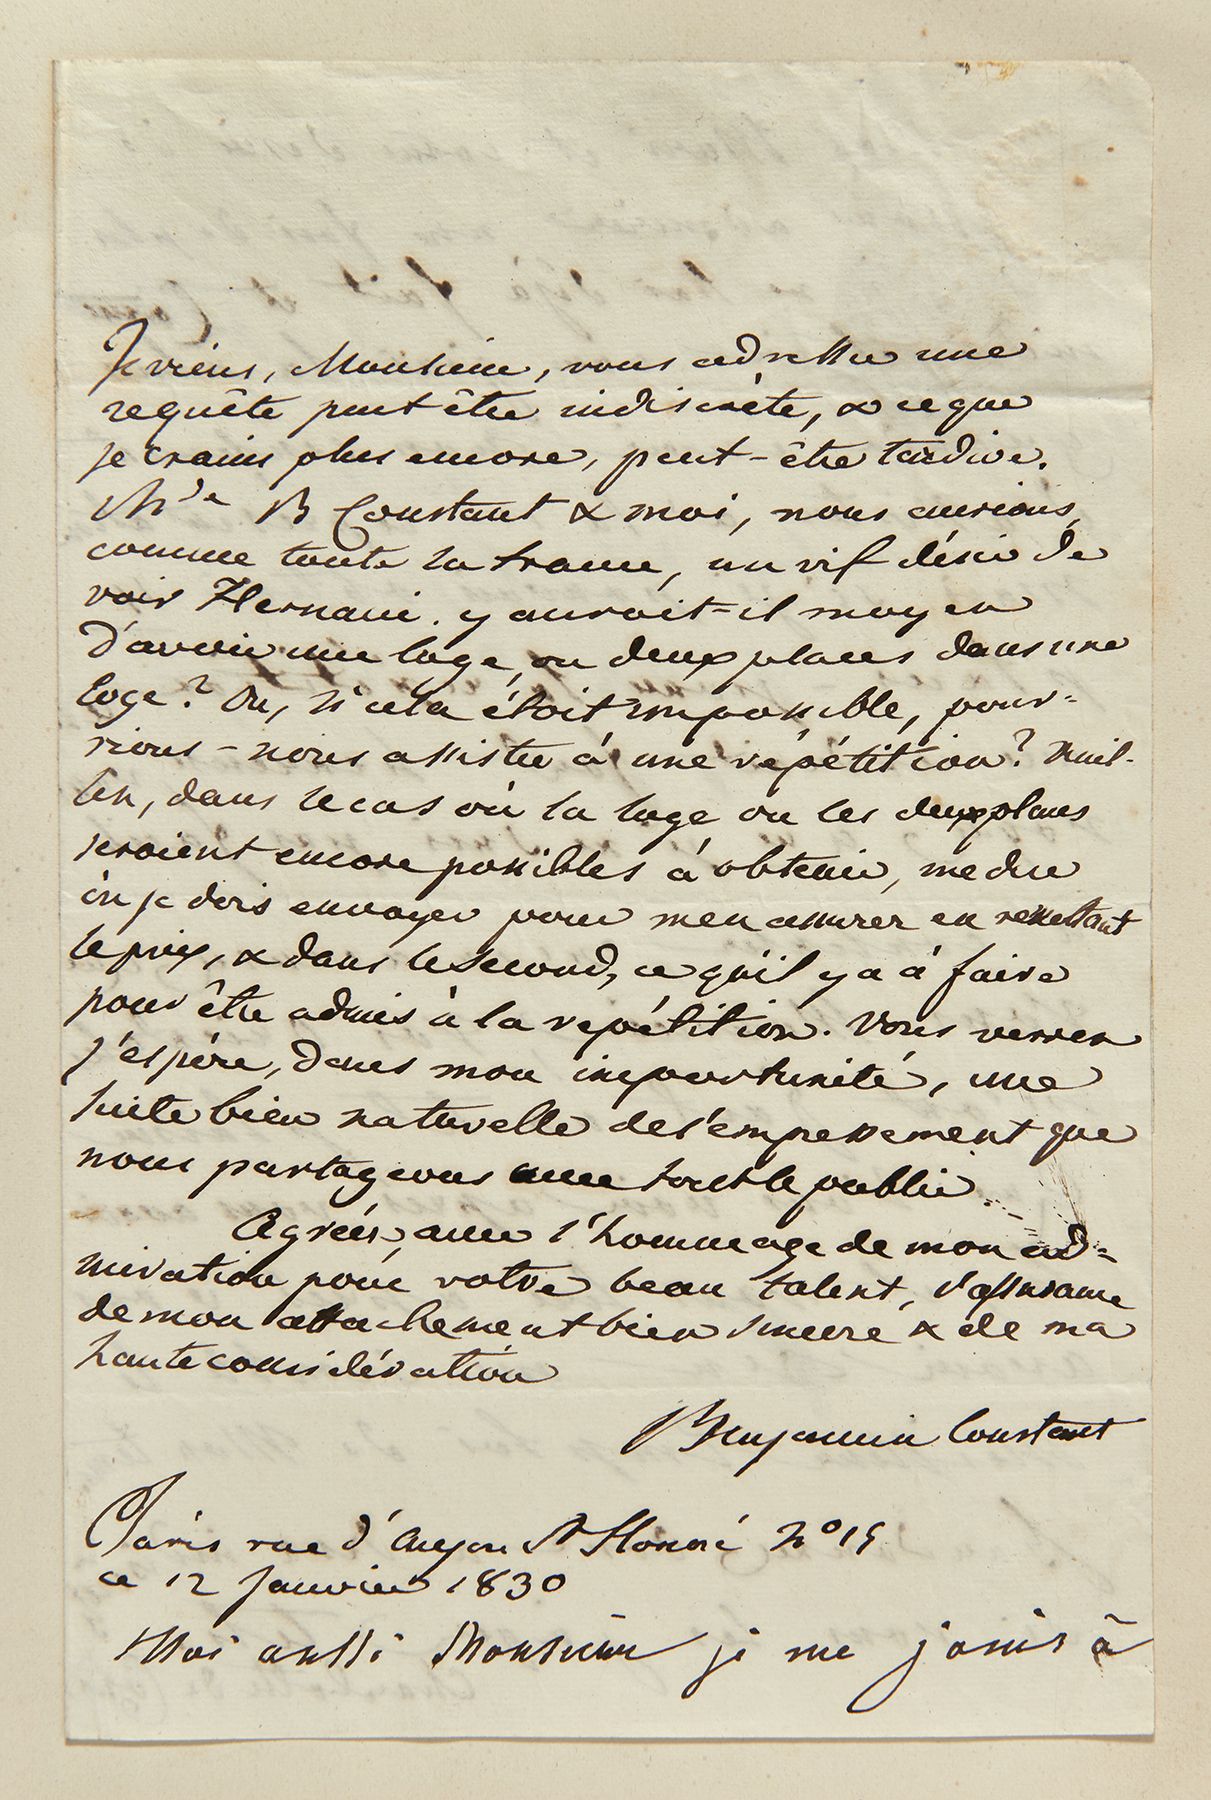 Je viens, Monsieur, vous adresser une
requête peut être indiscrète, & ce que
je crains plus encore, peut-être tardive.
Mde B Constant & moi, nous aurions,
comme toute la france, un vif désir de
voir Hernani. y auroit-il moyen
d'avoir une loge, ou deux places dans une
loge? Ou, si cela étoit impossible, pour-
rions-nous assister à une répétition? Veuil-
lez, dans le cas où la loge ou les deux places
seroient encore possibles à obtenir, me dire
où je dois envoyer pour m'en assurer en remettant
le prix, & dans le second, ce qu'il y a à faire
pour être admis à la répétition. Vous verrez
j'espère, dans mon importunité, une
suite bien naturelle de l'empressement que
nous partageons avec tout le public.
Agréez, avec l'hommage de mon ad-
miration pour votre beau talent, l'assurance
de mon attachement bien sincère & de ma
haute considération
Benjamin Constant
Paris rue d'Anjou St Honoré No 15
ce 12 Janvier 1830
Moi aussi Monsieur je me joins à